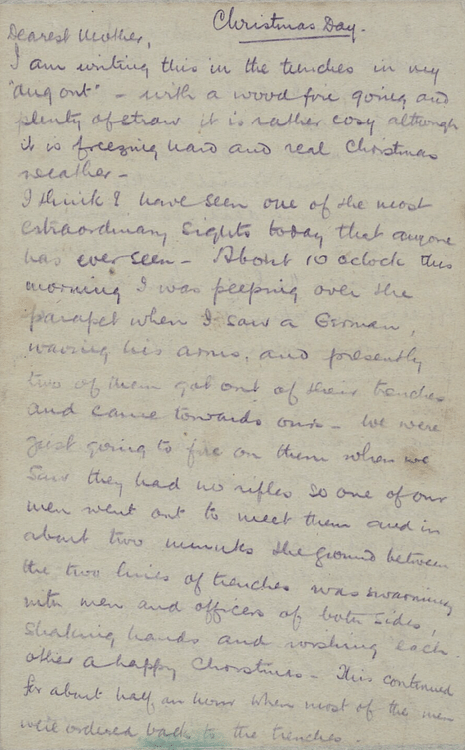 Christmas Day.
Dearest Mother,
I am writing this in the trenches in my
"dug out" - with a wood fire going and
plenty of straw it is rather cosy although
it is freezing hard and real Christmas
weather -
I think I have seen one of the most
extraordinary sights today that anyone
has ever seen - About 10 oclock this
morning I was peeping over the
parapet when I saw a German,
waving his arms, and presently
two of them got out of their trenches
and came towards ours - We were
just going to fire on them when we
saw they had no rifles so one of our
men went out to meet them and in
about two minutes the ground between
the two lines of trenches was swarming
with men and officers of both sides,
shaking hands and wishing each
other a happy Christmas - This continued
for about half an hour when most of the men
were ordered back to the trenches.